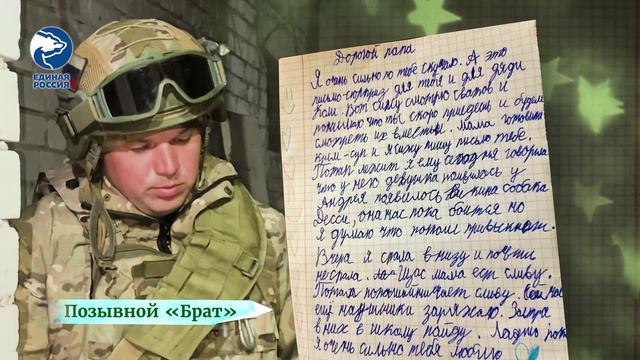 ЕДИНАЯ
РОССИЯ
Позывной «Брат»
Дорогой папа
Я очень сильно по тебе скучаю. А это
письмо-сюрприз для тебя и для дяди
Коли. Вот сижу смотрю сватов и
понимаю что ты скоро приедеш и будем
смотреть их вместье. Мама готовит
крем-суп и я сижу пишу писмо тебе.
Потап лежит я ему сегодня говорила
что у него девушка появилась у
Андрея появилось кина собака
Десси, она нас пока боится но
я думаю что потом привыкнет.
Вчера я спала в низу и почти
не спала. Щас мама ест сливу.
Потапа сливу.
ещё наушники заряжаю. Завтра
в них в школу пойду Ладно
я очень сильно тебя люблю